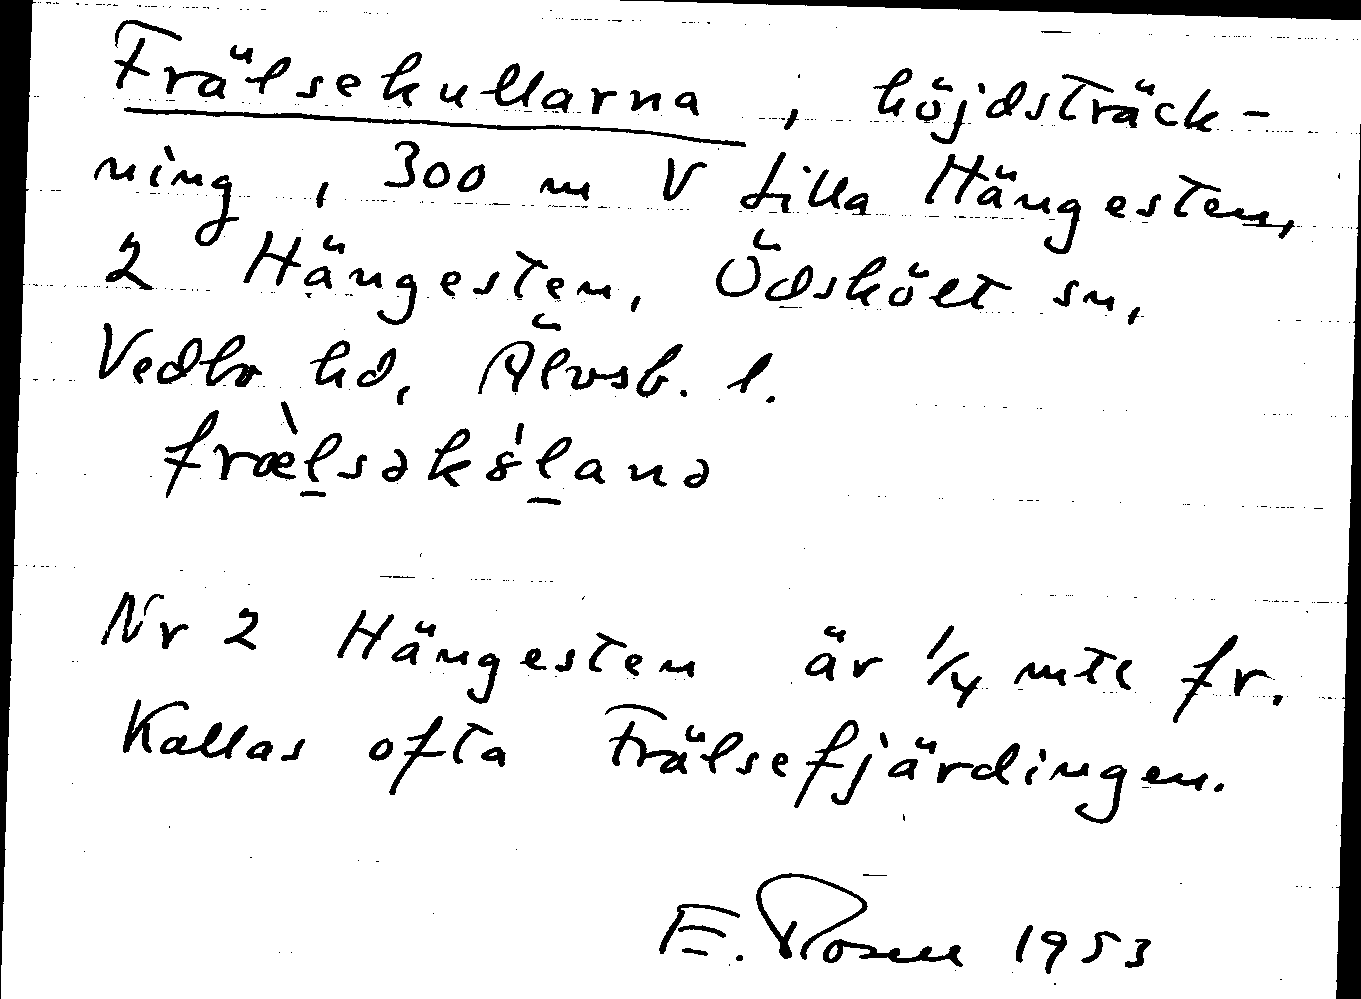 Frälsekullarna, höjdsträck-
ning, 300 m V Lilla Hängesten,
2 Hängesten, Ödskölt sn,
Vedbo hd, Älvsb. l.
fræ̀l̲sək8́l̲anə
Nr 2 Hängesten är 1/4 mtl fr.
Kallas ofta Frälsefjärdingen.
E. Rosell 1953